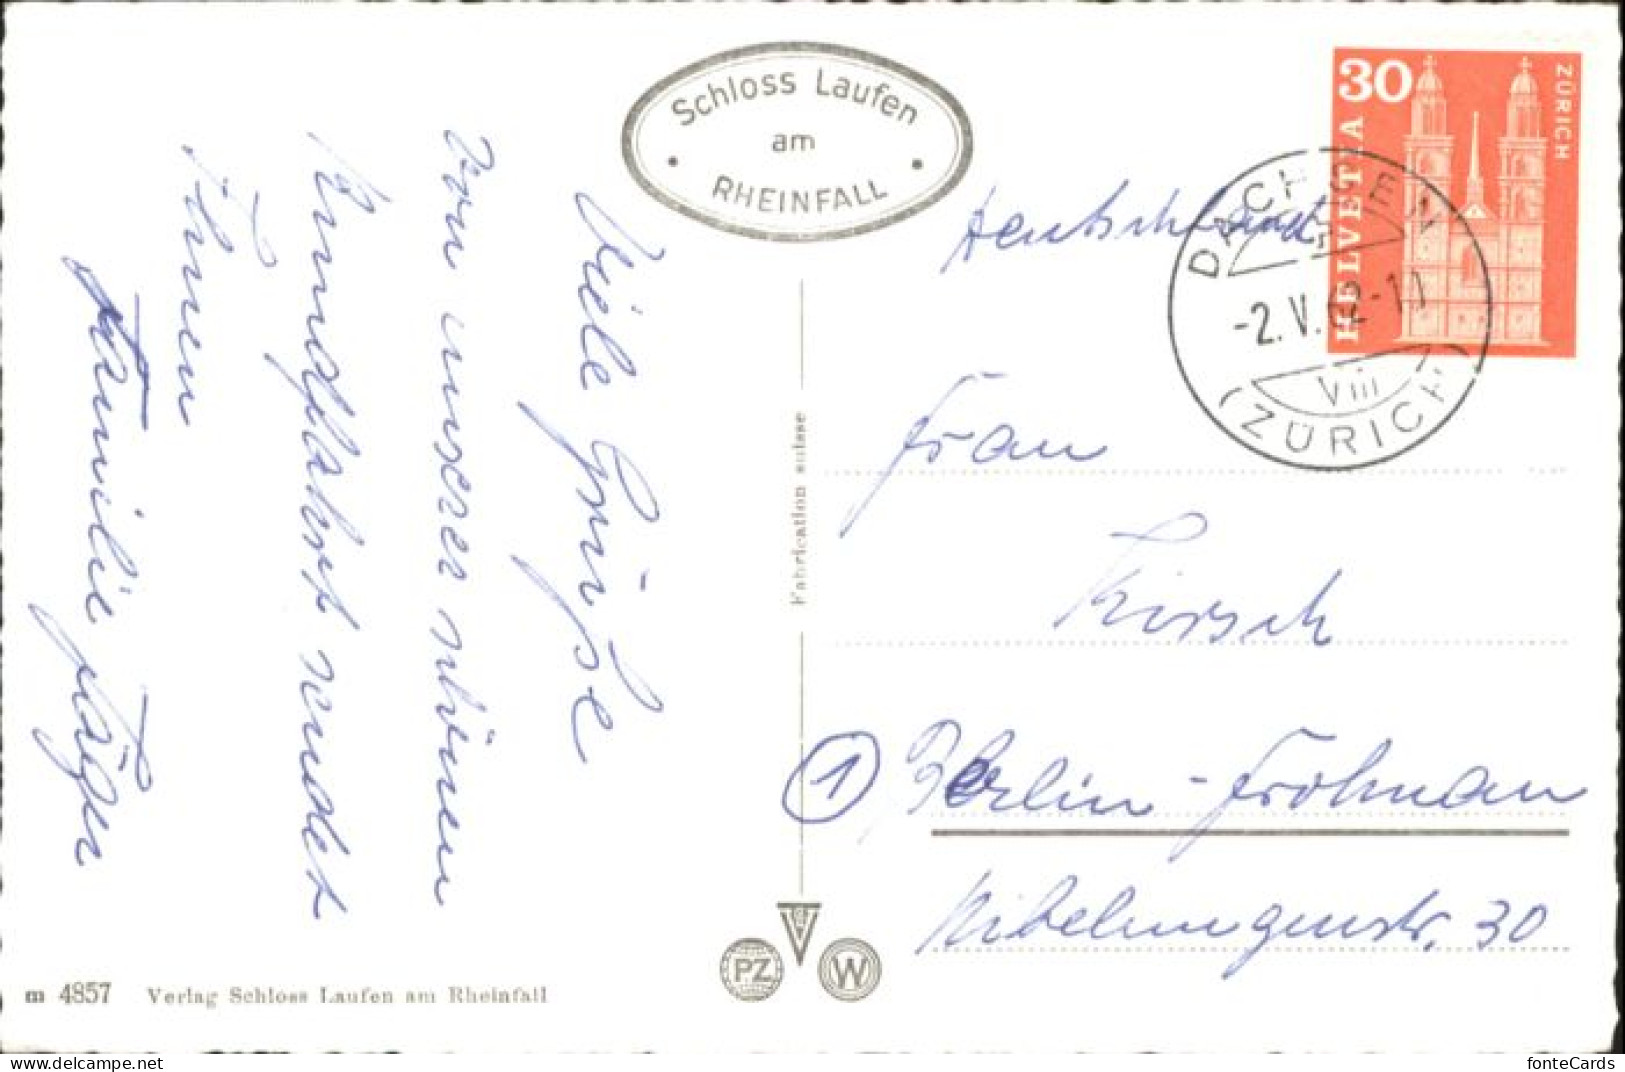 Schloss Laufen
am
RHEINFALL
30
ZÜRICH
HELVETIA
DACHSEN
-2.V.62-11
VIII
(ZÜRICH)
Deutschland
Frau
Kirsch
① Berlin-Frohnau
Nibelungenstr. 30
Viele Grüße
von unserer schönen
Rundfahrt sendet
Ihnen
Familie Jäger
Fabrication suisse
PZ
W
m 4857 Verlag Schloss Laufen am Rheinfall
fonteCards